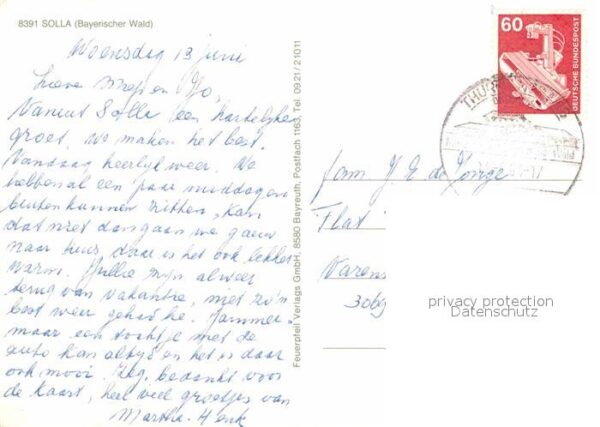 8391 SOLLA (Bayerischer Wald)
Woensdag 13 juni
Lieve en Jo,
Vanuit Solla een hartelijke
groet. We maken het best.
Vandaag heerlijk weer. We
hebben al een paar middagen
buiten kunnen zitten, kan
dat niet dan gaan we gauw
naar huis, daar is het ook lekker
warm. Jullie zijn alweer
terug van vakantie, met zo'n
best weer gehad he. Jammer
maar een tochtje met de
auto kan altijd en het is daar
ook mooi. Zeg, bedankt voor
de kaart, heel veel groetjes van
Martha - Henk
Feuerpfeil Verlags GmbH, 8580 Bayreuth, Postfach 1163, Tel. 09 21/2 10 11
60
DEUTSCHE BUNDESPOST
THUR
fam. J. E. de Jonge
Flat
Varens
3069
privacy protection
Datenschutz